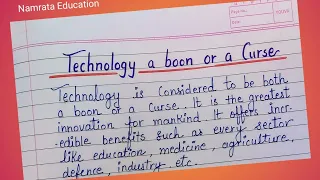 Namrata Education
Technology a boon or a Curse
Technology is Considered to be both
a boon or a Curse. It is the greatest
innovation for mankind It offers incr-
edible benefits such as every sector
like education, medicine, agriculture,
defence, industry etc.